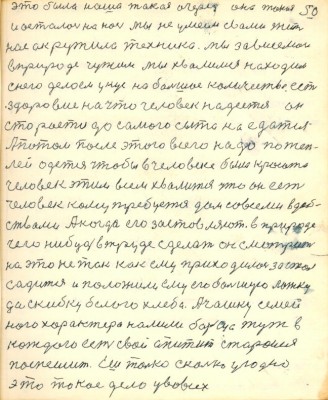 это была наша такая очередь она тонья 50
и осталси на ног мы не умеим сваими жить
нас окружила техника. мы зависемои
в природе чужими мы хвалимся находим
снего делоем у нас на большое количество есть
здоровие на что человек надеетса он
старается до самого сыта наедатся.
А потом после этого всего надо потеп-
лей одется чтобы в человека была красота
человек этим всем хвалится что он есть
человек кому требуется дом совсеми удоб-
ствами А когда его заставляют. в природе
чего нибудь в труде сделать он смотрит
на это не так как ему приходилось за стол
садится и положили ему его большую ложку
да скибку белого хлеба. А чашку семей
ного характера налили борща тут в
каждого есть свой апитит старойся
поспешит. Ещ только сколко угодно
это токое дело у всех